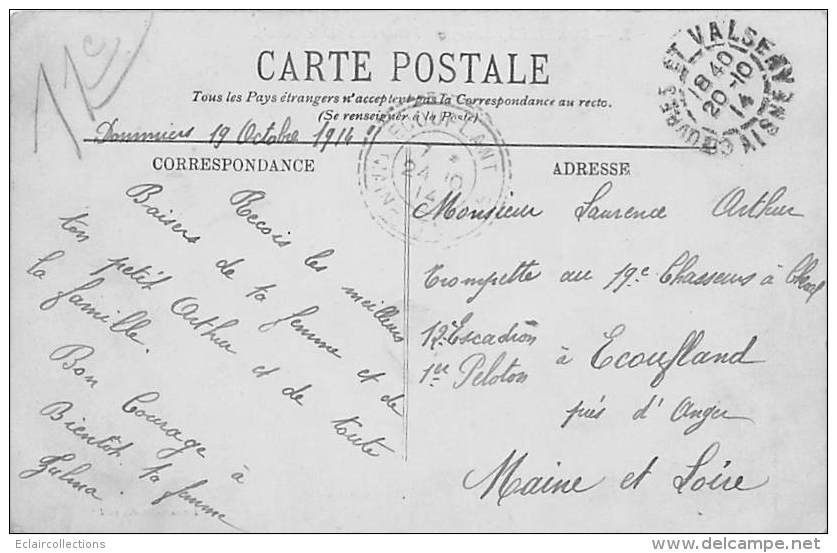 11e
CARTE POSTALE
Tous les Pays étrangers n'acceptent pas la Correspondance au recto.
(Se renseigner à la Poste)
Dommiers 19 Octobre 1914
CORRESPONDANCE
Recois les meilleurs
Baisers de ta femme et de
ton petit Arthur et de toute
la famille.
Bon Courage à
Bientôt ta femme
Zulma
ADRESSE
Monsieur Laurence Arthur
Trompette au 19e Chasseurs à Cheval
12e Escadron
1er Peloton
à Ecoufland
près d'Anger
Maine et Loire
COEUVRES ET VALSERY
AISNE
18 40
20 -10
14
ECOUFLANT
24 10
14
Eclaircollections
delcampe.net